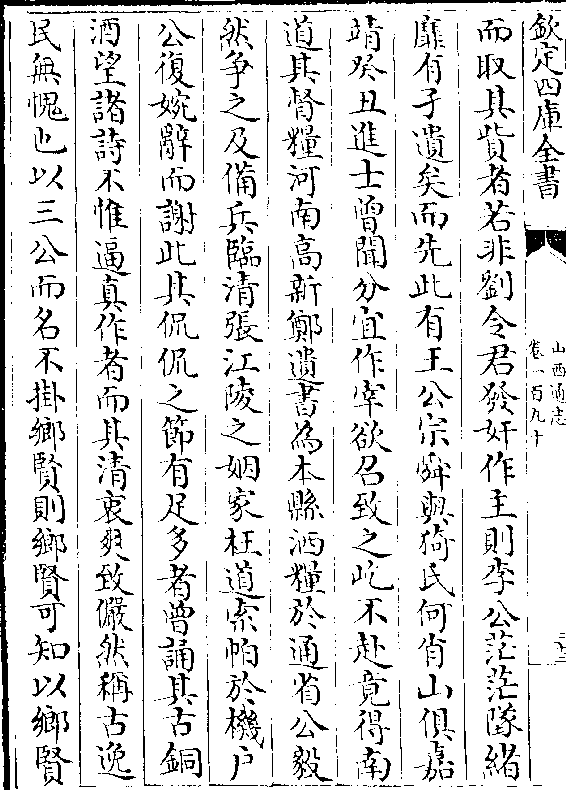 欽定四庫全書
山西通志
卷一百九十
而取其貲者若非劉令君發奸作主則李公茫茫隊緒
靡有孑遺矣而先此有王公宗舜與猗氏何肖山俱嘉
靖癸丑進士曾聞分宜作宰欲召致之屹不赴竟得南
道其督糧河南高新鄭遺書為本縣洒糧於通省公毅
然争之及備兵臨清張江陵之姻家枉道索帕於機户
公復婉辭而謝此其侃侃之節有足多者曾誦其古銅
酒望諸詩不惟逼真作者而其清衷爽致儼然稱古逸
民無愧也以三公而名不掛鄉賢則鄉賢可知以鄉賢